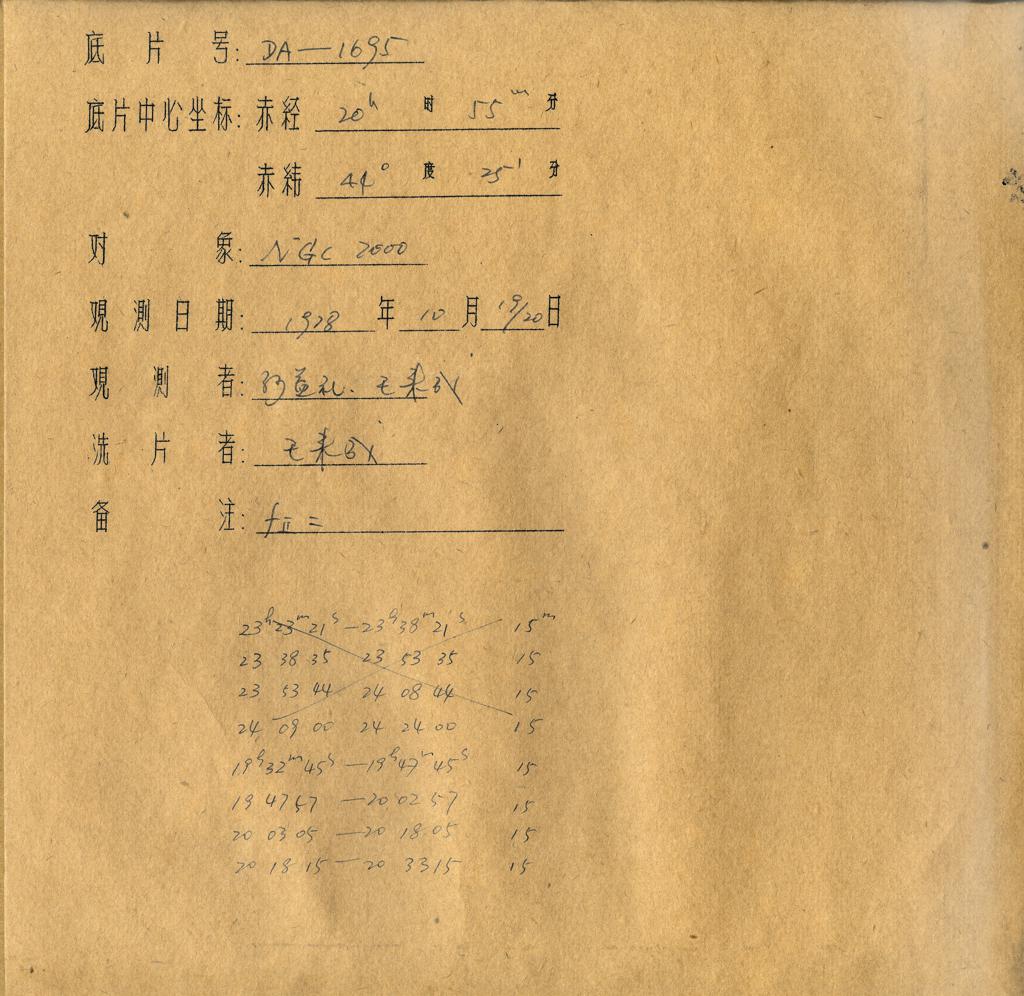 底片号: DA—1695
底片中心坐标: 赤经 20h 时 55m 分
赤纬 44° 度 25' 分
对象: NGC 7000
观测日期: 1978 年 10 月 19/20 日
观测者:
洗片者:
备注: fⅡ =
23h 23m 21s — 23h 38m 21s 15m
23 38 35 23 53 35 15
23 53 44 24 08 44 15
24 09 00 24 24 00 15
19h 32m 45s — 19h 47m 45s 15
19 47 57 — 20 02 57 15
20 03 05 — 20 18 05 15
20 18 15 — 20 33 15 15